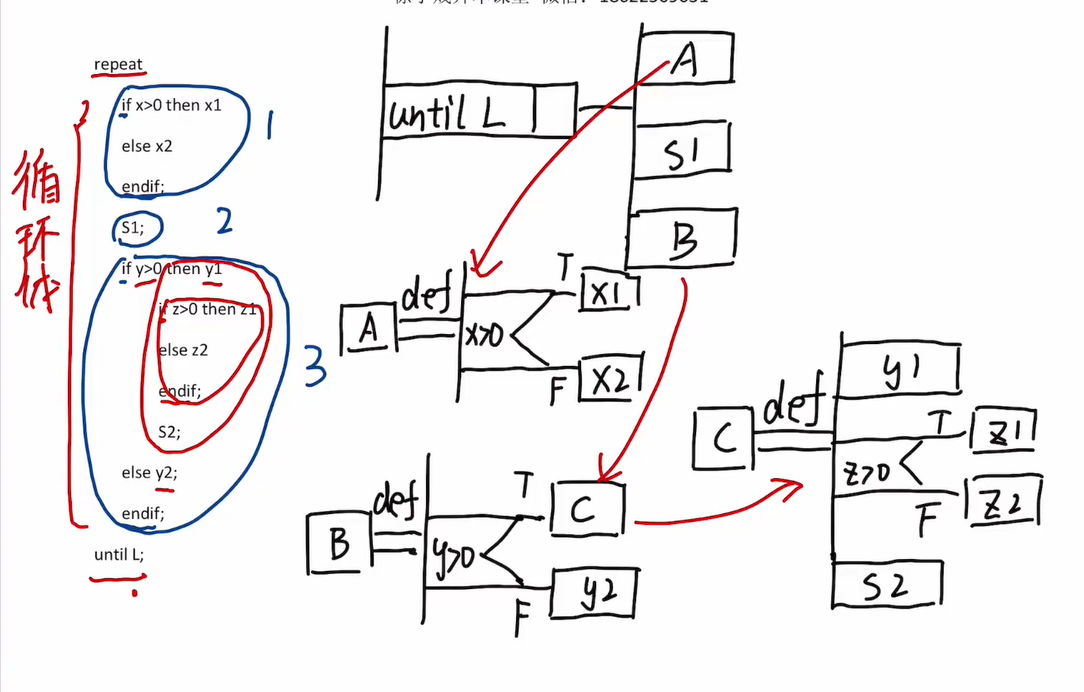 repeat
if x>0 then x1
else x2
endif;
S1;
if y>0 then y1
if z>0 then z1
else z2
endif;
S2;
else y2;
endif;
until L;
循
环
体
1
2
3
until L
A
S1
B
A def x>0
T X1
F X2
B def y>0
T C
F y2
C def
y1
z>0
T z1
F z2
S2